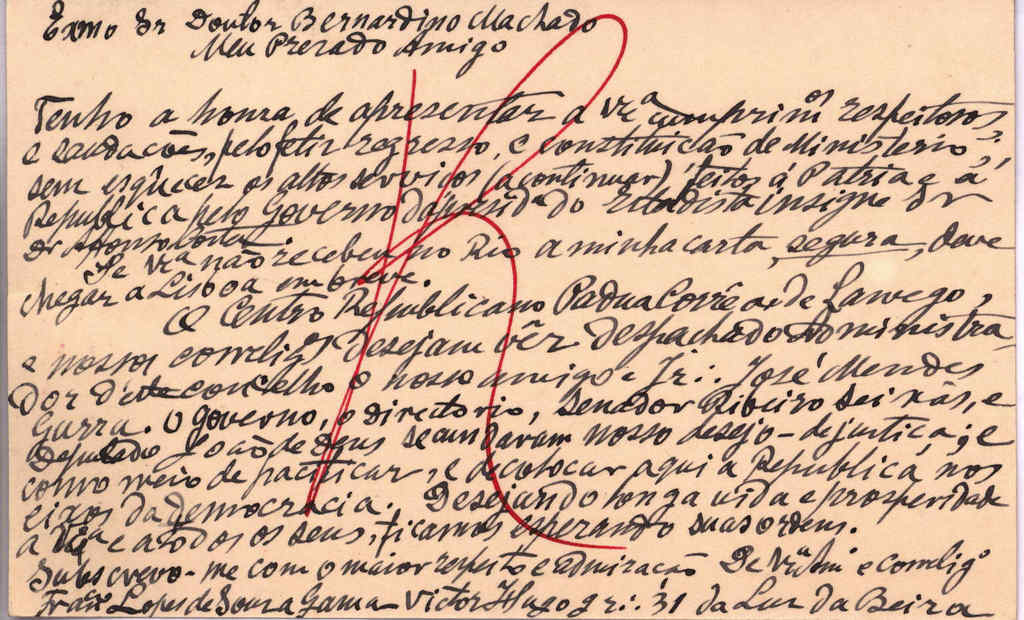 Exmo Sr Doutor Bernardino Machado
Meu Prezado Amigo
Tenho a honra de apresentar a Vra cumprimos respeitosos,
e saudações, pelo feliz regresso, e constituição de Ministerio,
sem esquecer os altos serviços (a continuar) feitos á Patria e á
Republica pelo Governo da presida do Estadista insigne Sr
Dr Afonso Costa
Se Vra não recebeu no Rio a minha carta, segura, deve
chegar a Lisboa em breve.
O Centro Republicano Padua Corrêa de Lamego,
e nossos correligos desejam vêr despachado Administra
dor deste concelho o nosso amigo e Ir∴ José Mendes
Guerra. O Governo, o directorio, Senador Ribeiro Seixas, e
Deputado João de Deus secundaram nosso desejo - de justiça; e
como meio de pacificar, e de colocar aqui a Republica, nos
eixos da democracia. Desejando longa vida e prosperidade
a Vra e a todos os seus, ficamos esperando suas ordens.
Subscrevo-me com o maior respeito e admiração De Vra e correlig
Lopes de Souza Gama - Victor Hugo gr∴ 31 da Luz da Beira